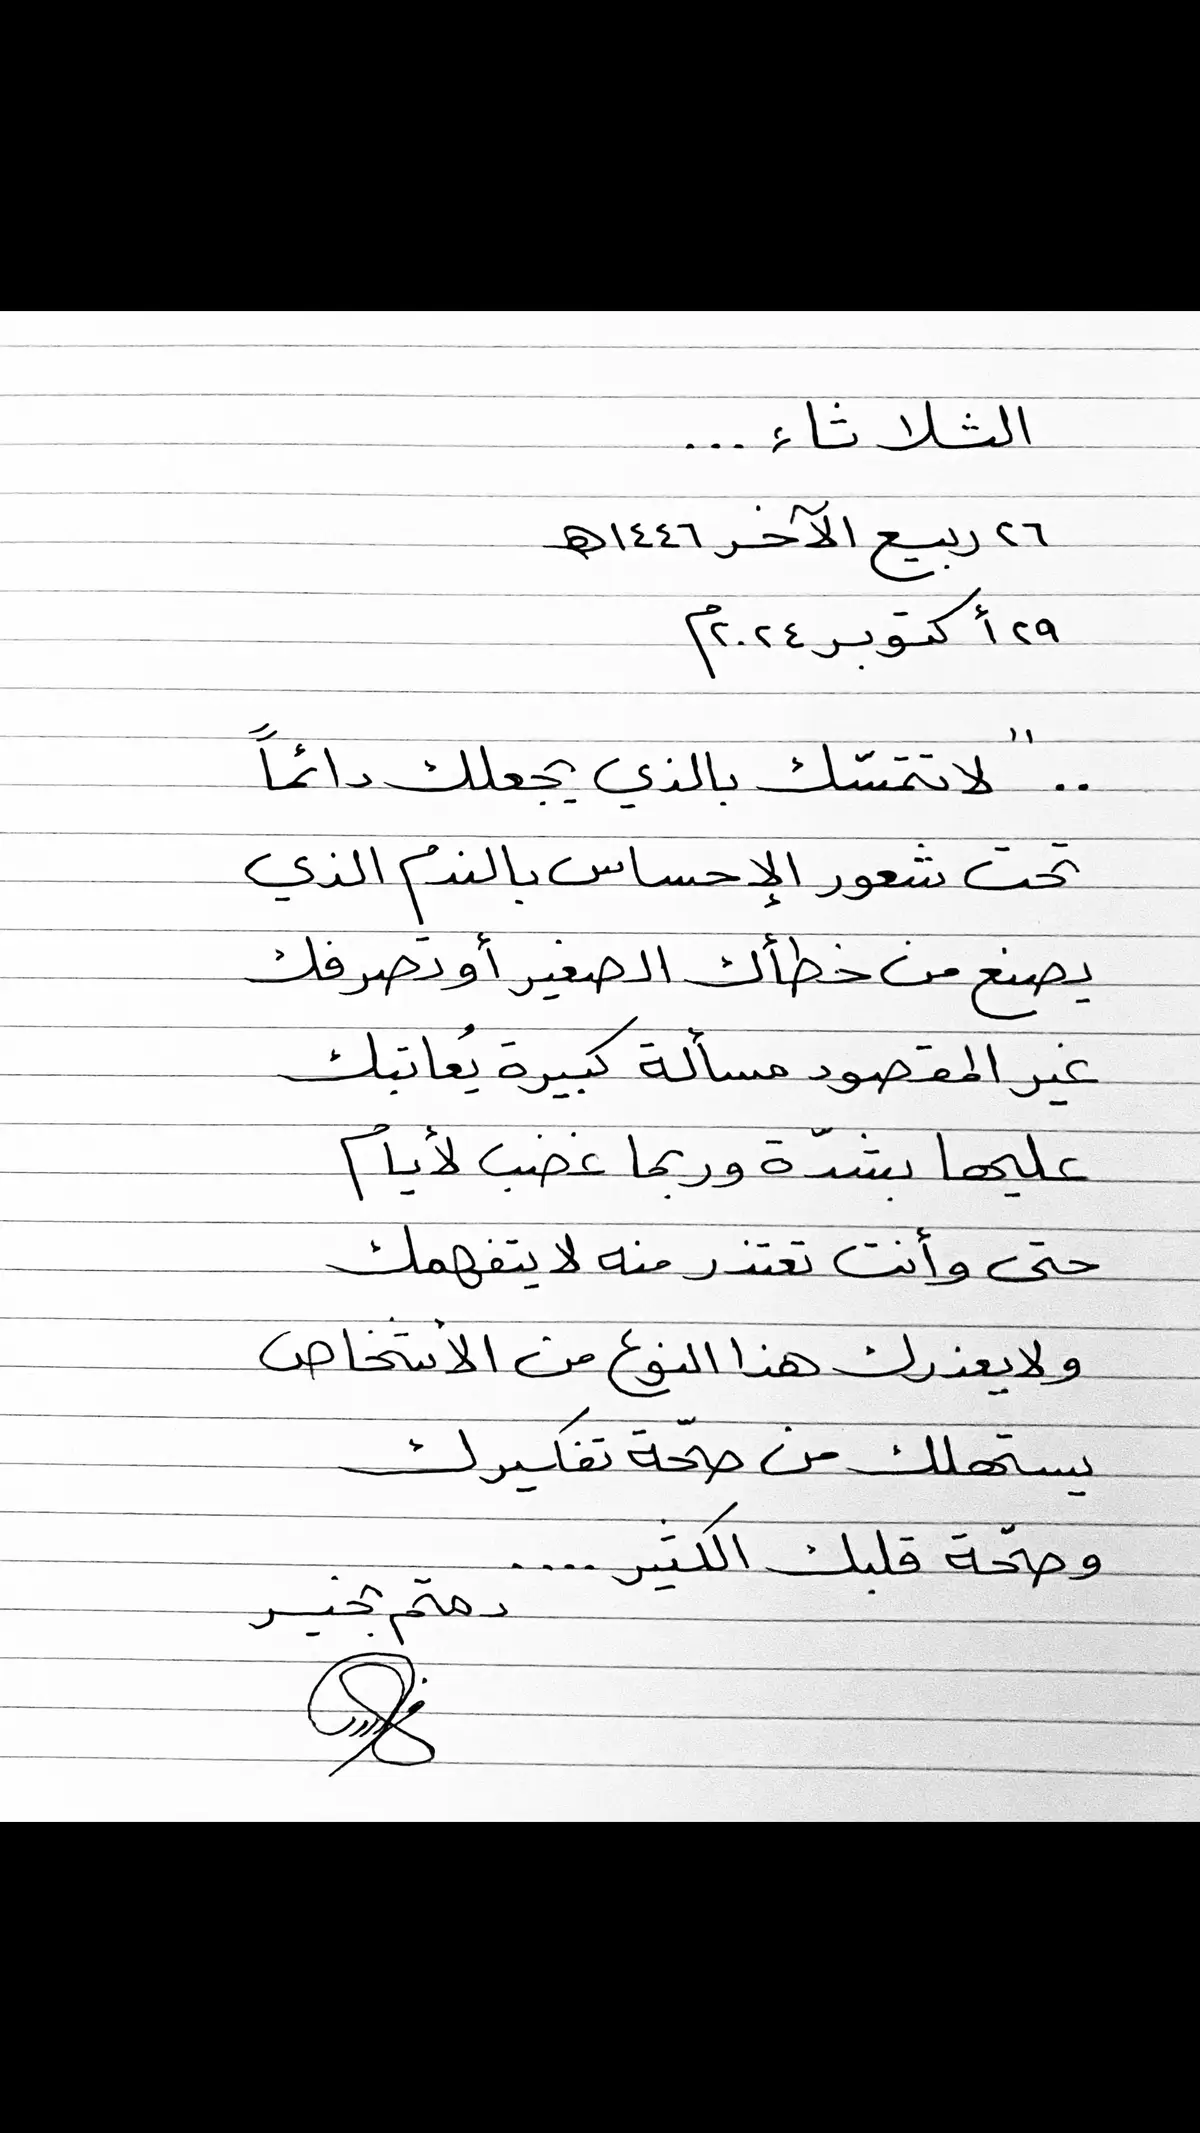 الثلاثاء ...
٢٦ ربيع الآخر ١٤٤٦هـ
٢٩ أكتوبر ٢٠٢٤م
.. " لا تتمسّك بالذي يجعلك دائماً
تحت شعور الإحساس بالندم الذي
يصنع من خطأك الصغير أو تصرفك
غير المقصود مسألة كبيرة يُعاتبك
عليها بشدّة وربما غضب لأيام
حتى وأنت تعتذر منه لا يتفهمك
ولا يعذرك هذا النوع من الأشخاص
يستهلك من صحّة تفكيرك
وصحّة قلبك الكثير ....
دمتم بخير